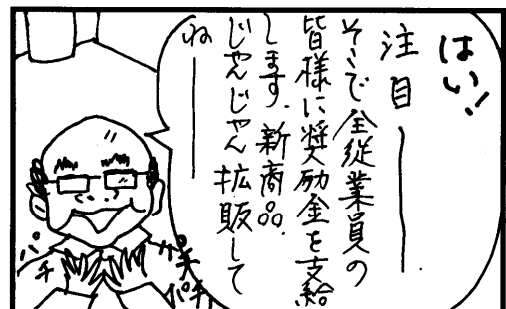 はい!
注目ーー
そこで全従業員の
皆様に奨励金を支給
します、新商品、
じゃんじゃん拡販して
ねーー
パチ
パチ
パチ